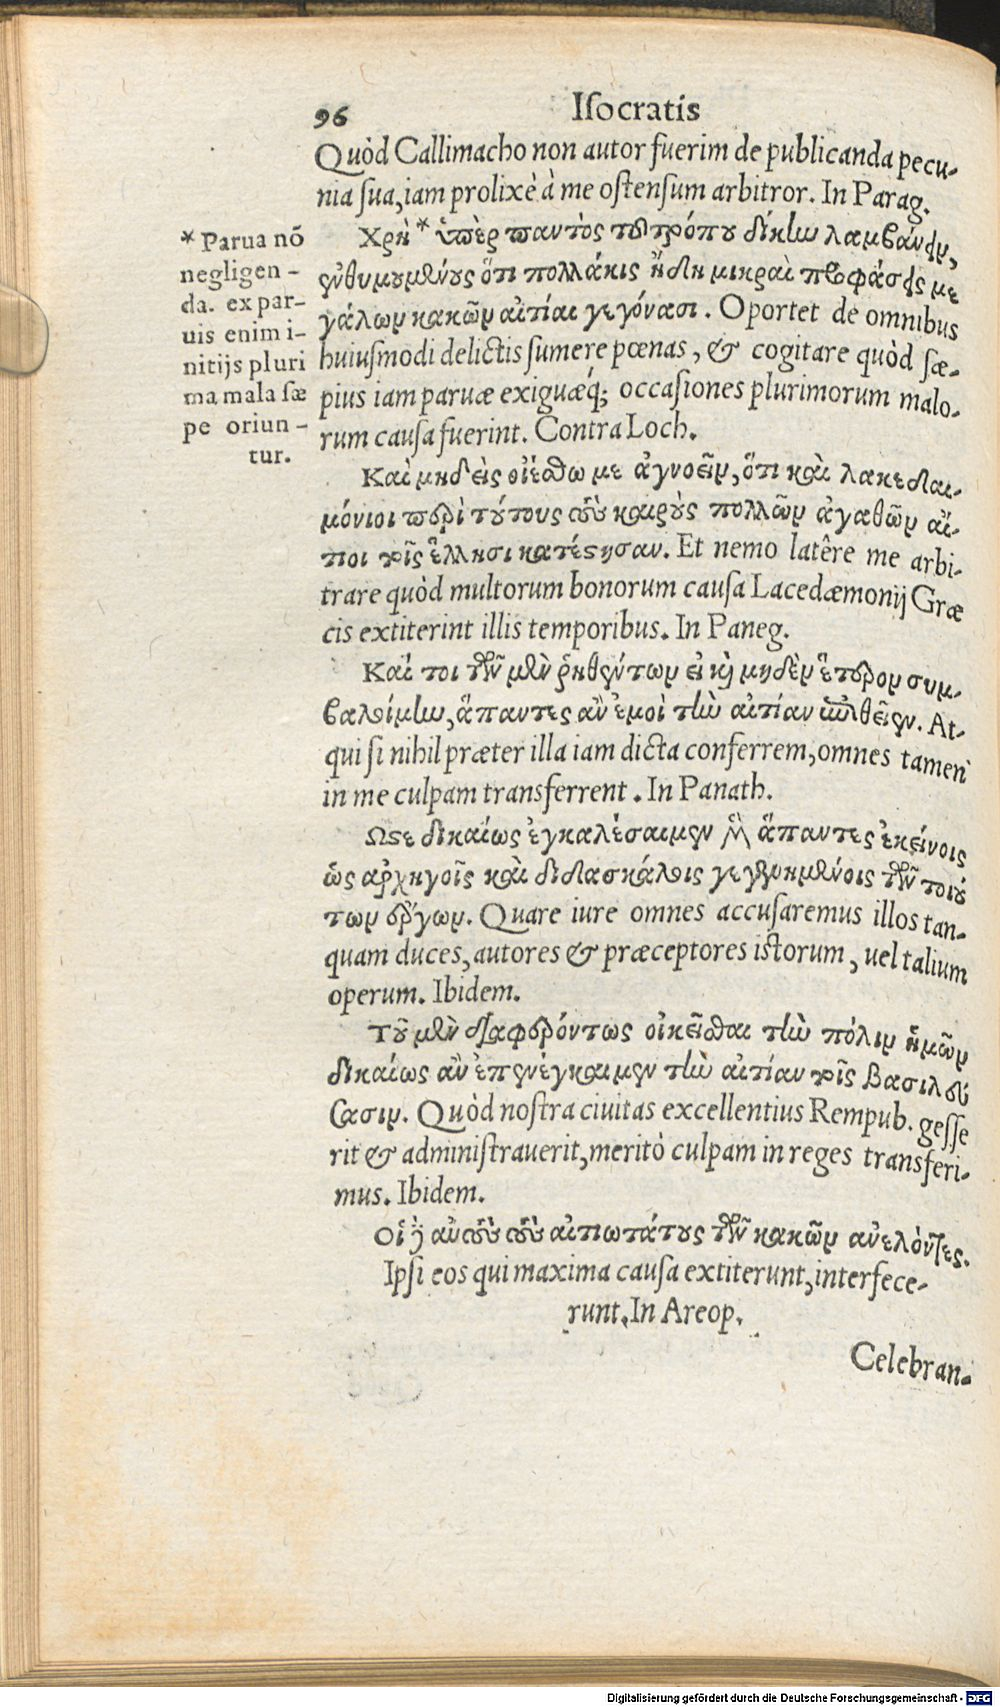 96 Iſocratis
Quòd Callimacho non autor fuerim de publicanda pecu-
nia sua, iam prolixè à me oſtensum arbitror. In Parag.
* Parua nõ
negligen-
da. ex par-
uis enim i-
nitijs pluri
ma mala ſæ
pe oriun-
tur.
Χρὴ * ὑπὲρ παντὸς τοῦ τρόπου δίκην λαμβάνειν,
ἐνθυμουμένους ὅτι πολλάκις ἤδη μικραὶ προφάσεις με
γάλων κακῶν αἰτίαι γεγόνασι. Oportet de omnibus
huiuſmodi delictis sumere pœnas, & cogitare quòd ſæ-
pius iam paruæ exiguæq́; occaſiones plurimorum malo-
rum cauſa fuerint. Contra Loch.
Καὶ μηδεὶς οἰέσθω με ἀγνοεῖν, ὅτι καὶ λακεδαι-
μόνιοι περὶ τούτους τοὺς καιροὺς πολλῶν ἀγαθῶν αἴ-
τιοι τοῖς ἕλλησι κατέστησαν. Et nemo latêre me arbi-
trare quòd multorum bonorum cauſa Lacedæmonij Græ
cis extiterint illis temporibus. In Paneg.
Καί τοι τῶν μὲν ῥηθέντων εἰ καὶ μηδὲν ἕτερον συμ-
βαλοίμην, ἅπαντες ἂν ἐμοὶ τὴν αἰτίαν ἀναθεῖεν. At-
qui ſi nihil præter illa iam dicta conferrem, omnes tamen
in me culpam transferrent. In Panath.
Ωστε δικαίως ἐγκαλέσαιμεν ἂν ἅπαντες ἐκείνοις
ὡς ἀρχηγοῖς καὶ διδασκάλοις γεγενημένοις τῶν τοιού
των ἔργων. Quare iure omnes accuſaremus illos tan-
quam duces, autores & præceptores iſtorum, uel talium
operum. Ibidem.
Τοῦ μὲν διαφερόντως οἰκεῖσθαι τὴν πόλιν ἡμῶν
δικαίως ἂν ἐπενέγκαιμεν τὴν αἰτίαν τοῖς βασιλεύ
σασιν. Quòd noſtra ciuitas excellentius Rempub. geſſe
rit & adminiſtrauerit, meritò culpam in reges transferi-
mus. Ibidem.
Οἱ δὲ αὐτοὺς τοὺς αἰτιωτάτους τῶν κακῶν ἀνελόντες.
Ipſi eos qui maxima cauſa extiterunt, interfece-
runt. In Areop.
Celebran-
Digitalisierung gefördert durch die Deutsche Forschungsgemeinschaft - DFG